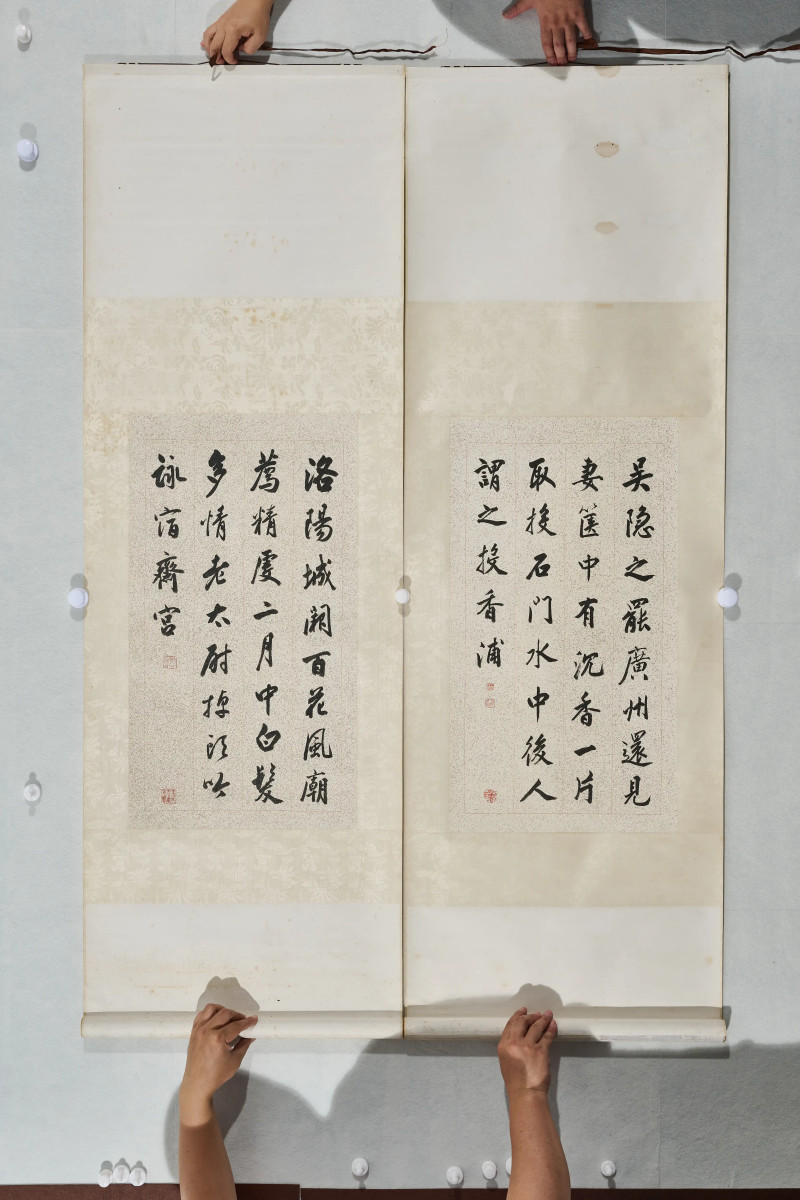 吴隐之罷廣州還見
妻篋中有沉香一片
取投石門水中後人
謂之投香浦
洛陽城闕百花風廟
薦精虔二月中白髮
多情老太尉掉頭吟
詠宿齋宮